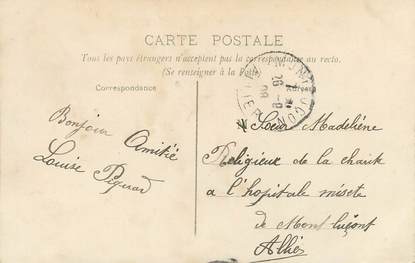 CARTE POSTALE
Tous les pays étrangers n'acceptent pas la correspondance au recto.
(Se renseigner à la Poste)
Correspondance
Bonjour
Amitié
Louise
Sœur Madeleine
Religieux de la charite
a l'hopitale
de Mont luçont
Allier